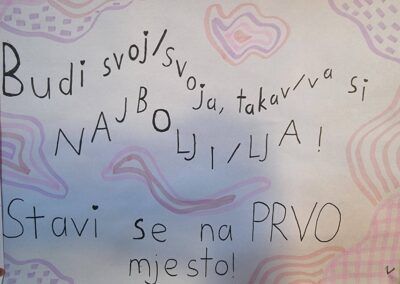 Budi svoj/svoja, takav/va si
NAJBOLJI/LJA!
Stavi se na PRVO
mjesto!